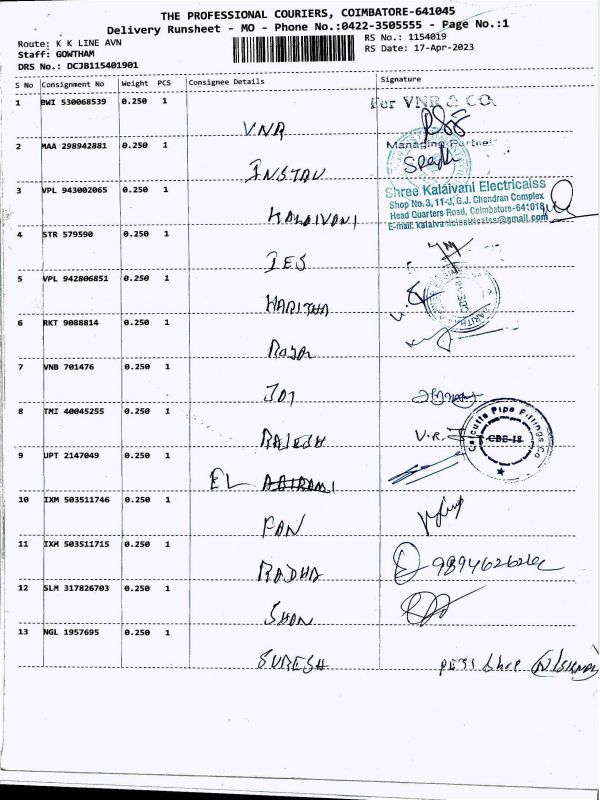 THE PROFESSIONAL COURIERS, COIMBATORE-641045
Delivery Runsheet - MO - Phone No.:0422-3505555 - Page No.:1
Route: K K LINE AVN
RS No.: 1154019
Staff: GOWTHAM
RS Date: 17-Apr-2023
DRS No.: DCJB115401901
S No Consignment No Weight PCS Consignee Details Signature
1 BWI 530068539 0.250 1
For VNR & CO.
VNR
Managing Partner
2 MAA 298942881 0.250 1
3 VPL 943002065 0.250 1
Shree Kalaivani Electricalss
Shop No.3, 11-J, G.J. Chandran Complex
Head Quarters Road, Coimbatore-641018
E-mail: kalaivanielectricalss@gmail.com
KALAIVANI
4 STR 579590 0.250 1
IES
5 VPL 942806851 0.250 1
HARITHA
6 RKT 9088814 0.250 1
7 VNB 701476 0.250 1
8 TMI 40045255 0.250 1
RAJESH
V.R.
Calcutta Pipe Fittings Co
CBE-18
9 UPT 2147049 0.250 1
EL
10 IXM 503511746 0.250 1
PAN
11 IXM 503511715 0.250 1
RADHA
12 SLM 317826703 0.250 1
13 NGL 1957695 0.250 1
SURESH